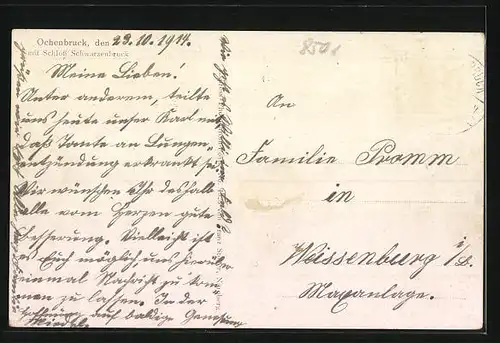 Ochenbruck, den 23.10.1914.
mit Schloß Schwarzenbruck
8501
Meine Lieben!
Unter anderem, teilte
uns heute unser Karl mit
daß Tante an Lungen-
entzündung erkrankt sei
Wir wünschen Ihr deshalb
alle vom Herzen gute
Besserung. Vielleicht ist
es Euch möglich, uns hierüber
einmal Nachricht zu kom-
men zu lassen. In der
Hoffnung auf baldige Genesung
An
Familie Promm
in
Weissenburg i/B.
Maxanlage.